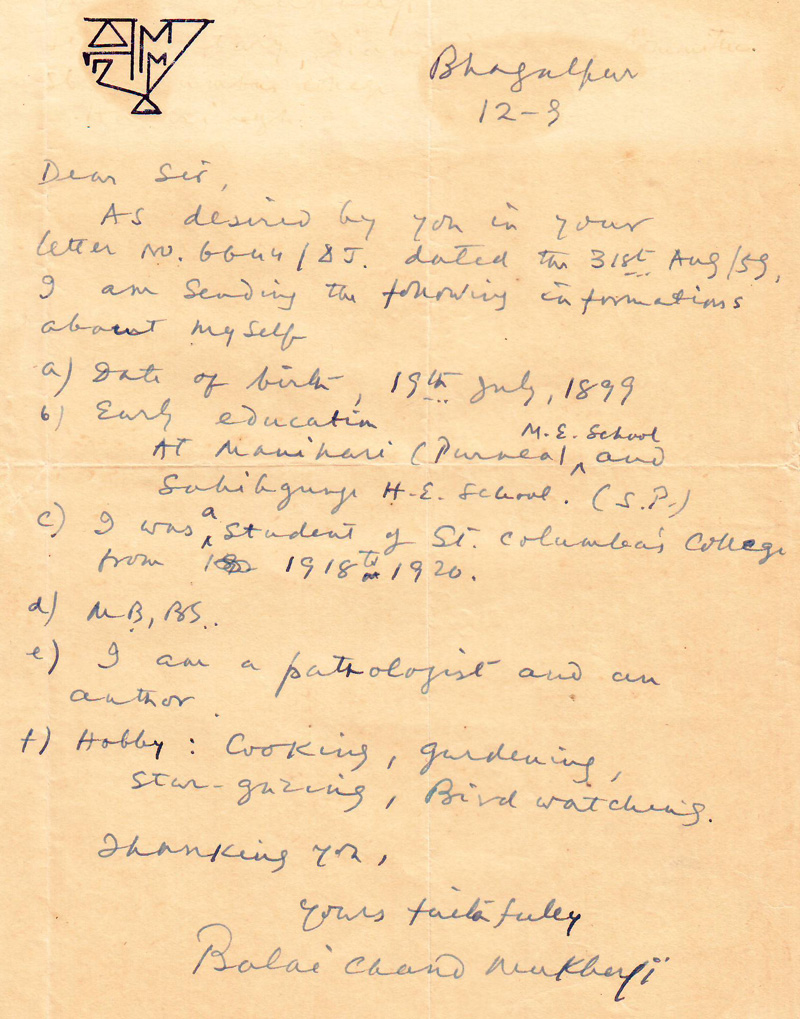 Bhagalpur
12-9
Dear Sir,
As desired by you in your
letter No. 6644/DJ. dated the 31st Aug/59,
I am sending the following informations
about myself
a) Date of birth, 19th July, 1899
b) Early education
At Manihari (Purnea) M.E. School and
Sahibgunge H.E. School. (S.P.)
c) I was a student of St. Columba's College
from 1918 to 1920.
d) MB, BS.
e) I am a pathologist and an
author.
f) Hobby : Cooking, gardening,
star-gazing, Bird watching.
Thanking you,
Yours faithfully
Balai Chand Mukherji